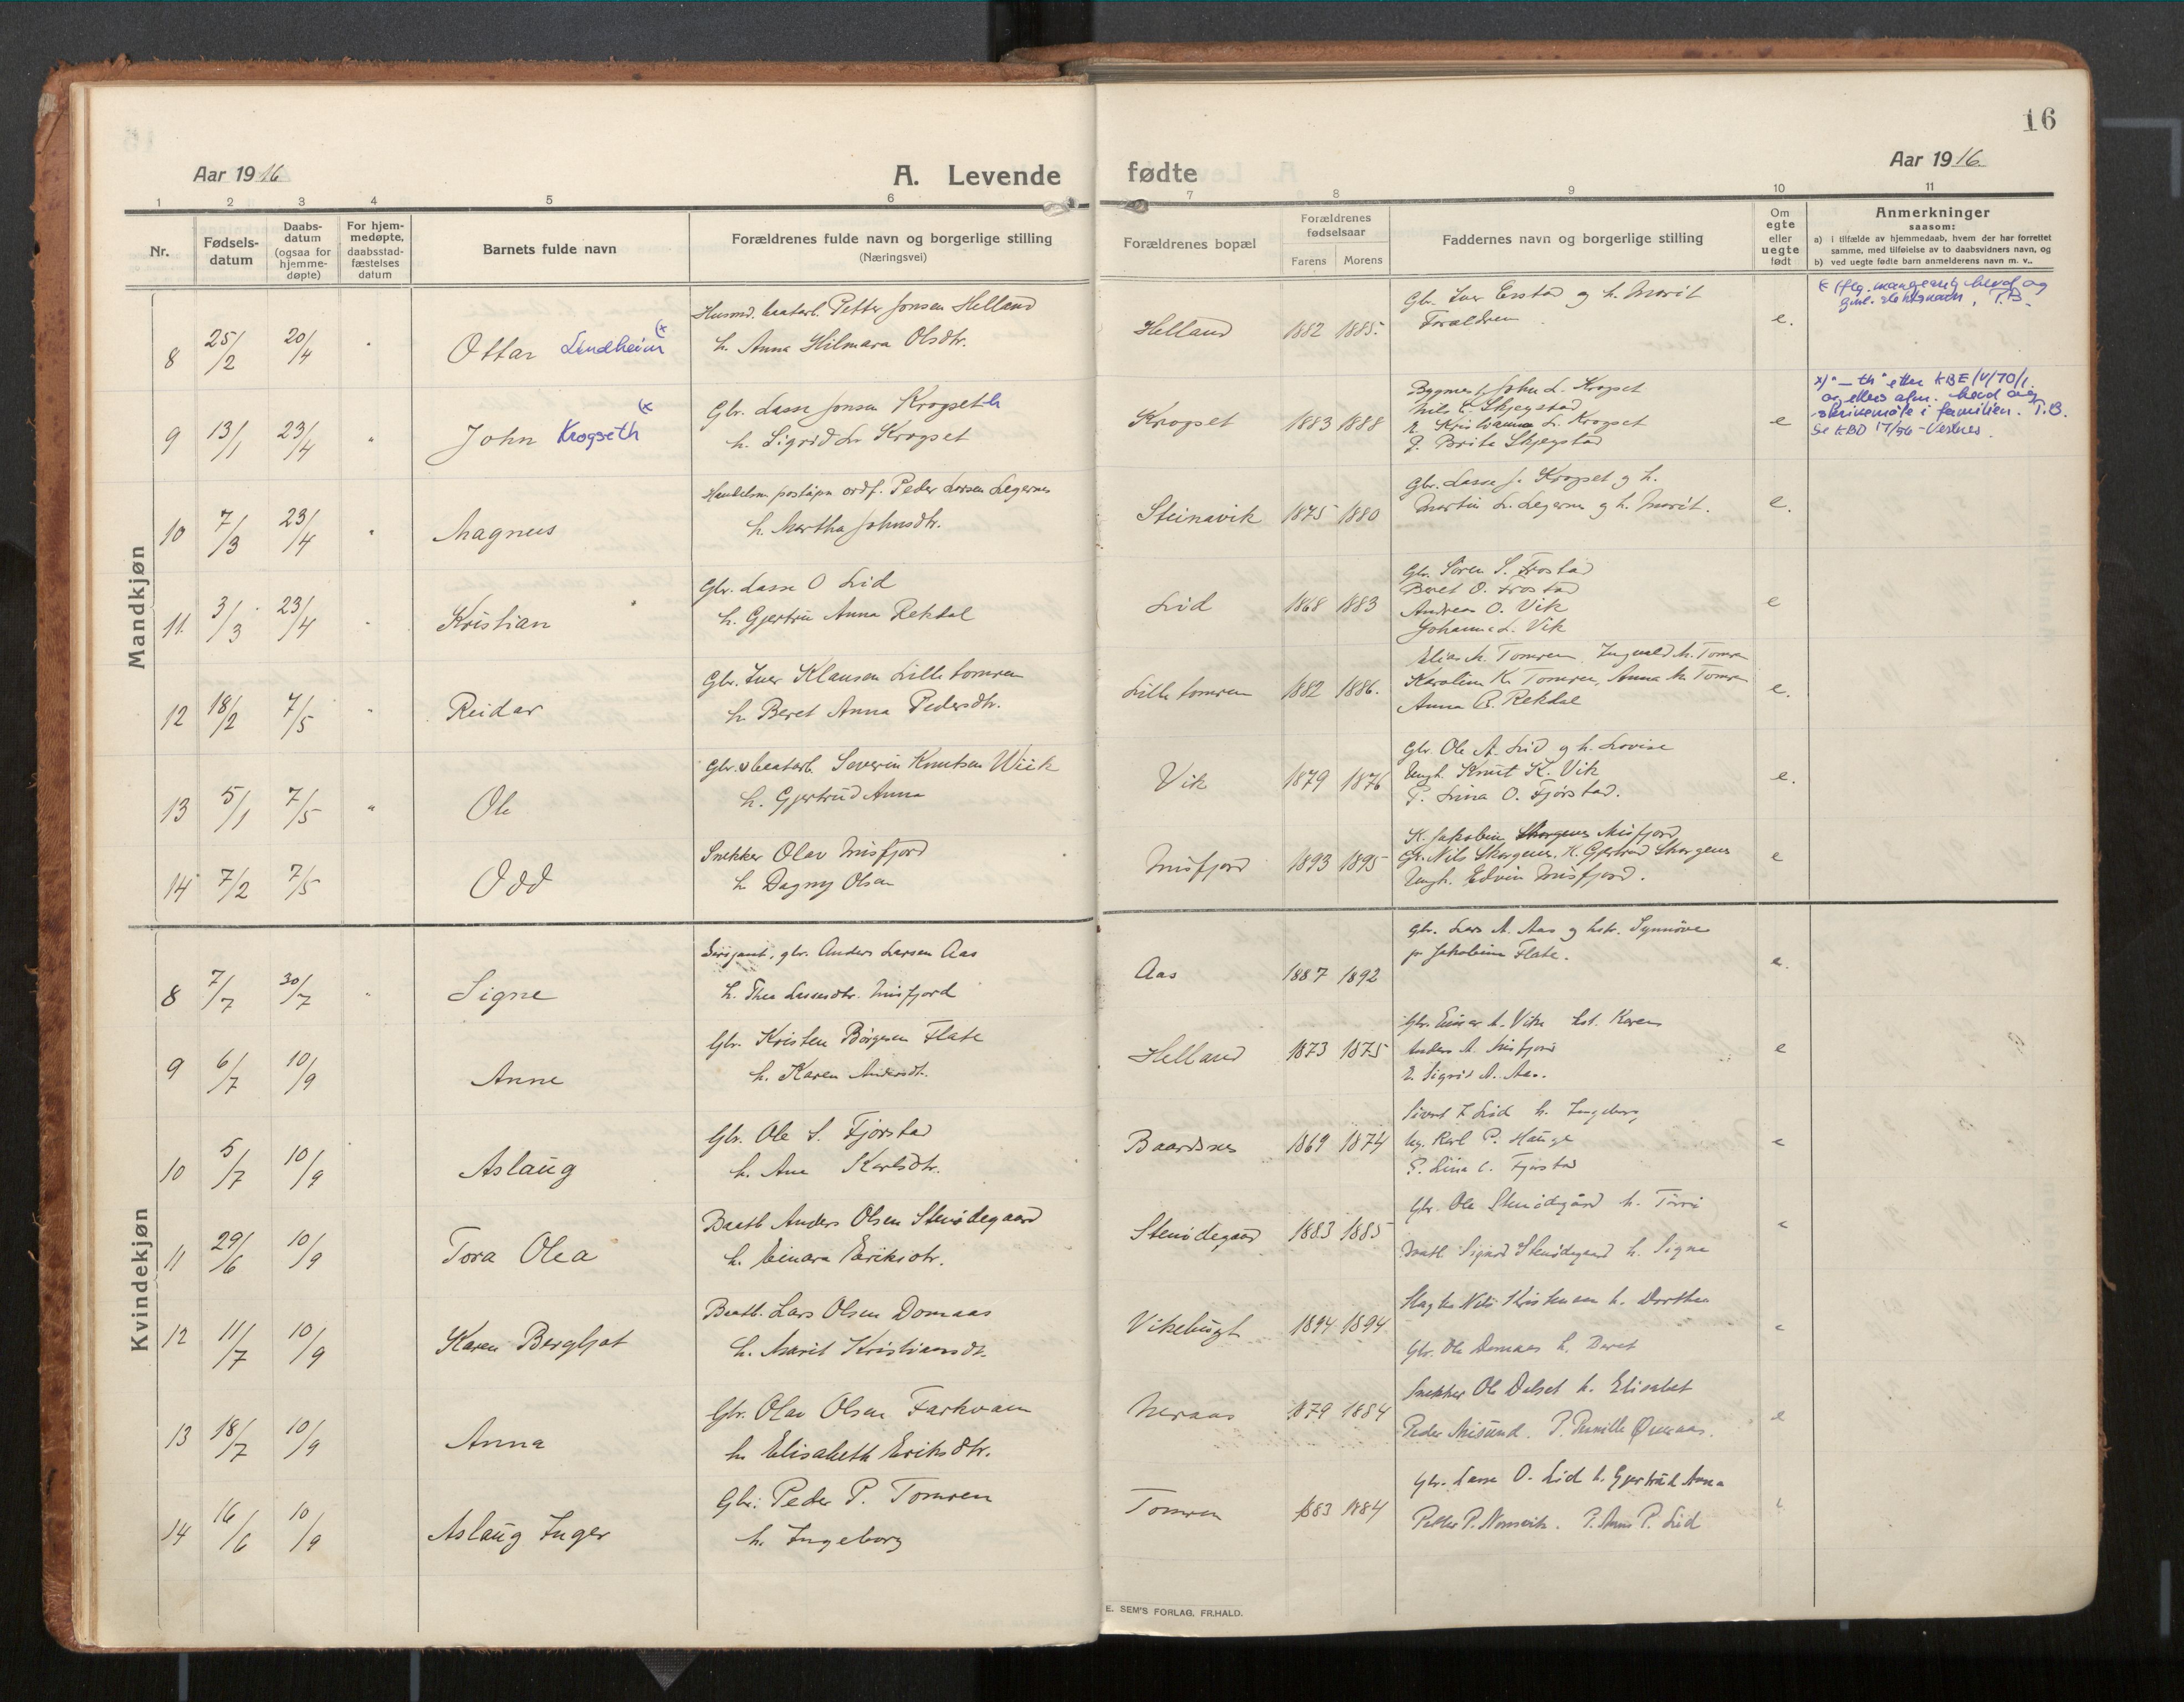 16
Aar 1916
A. Levende fødte
Aar 1916
1 2 3 4 5 6 7 8 9 10 11
Nr.
Fødsels-datum
Daabs-datum (ogsaa for hjemme-døpte)
For hjem-medøpte, daabsstad-fæstelses datum
Barnets fulde navn
Forældrenes fulde navn og borgerlige stilling
(Næringsvei)
Forældrenes bopæl
Forældrenes fødselsaar
Farens Morens
Faddernes navn og borgerlige stilling
Om egte eller uegte født
Anmerkninger
saasom:
a) i tilfælde av hjemmedaab, hvem der har forrettet
samme, med tilføielse av to daabsvidners navn, og
b) ved uegte fødte barn anmelderens navn m. v..
Mandkjøn
8 25/2 20/4 " Ottar Lindheim (x
Husmd. baatarb. Petter Jonsen Helland
h. Anna Hilmara Olsdtr.
Helland 1882 1885.
Gbr. Iver Erstad og h. Marit
Forældrene
e.
9 13/1 23/4 " John Krogseth (x
Gbr. Lasse Jonsen Krogseth
h. Sigrid L. Krogset
Krogset 1883 1888
Bygmest. John L. Krogset
Nils L. Skjegstad
P. Kristianna L. Krogset
P. Brite Skjegstad
e
x) "-th" etter KBE/V/70/1.
og ellers alm. hevd og
skrivemåte i familien. T.B.
Se KBD 17/56 - Vestnes.
10 7/3 23/4 " Magnus
Handelsm. postaapn ordf. Peder Larsen Legernes
h. Martha Johnsdtr.
Steinavik 1875 1880
Gbr. Lasse J. Krogset og h.
Martin L. Legernes og h. Marit.
e.
11. 3/3 23/4 " Kristian
Gbr. Lasse O Lid
h. Gjertru Anna Rekdal
Lid 1868 1883
Gbr. Sören S. Frostad
Beret O. Frostad
Andreas O. Vik
Johanne L. Vik
e
12 18/2 7/5 " Reidar
Gbr. Iver Klausen Lilletomren
h. Beret Anna Pedersdtr.
Lilletomren 1882 1886.
Elias M. Tomren. Ingvald M. Tomren
Karoline K. Tomren, Anna M. Tomren
Anna B. Rekdal
e.
13 5/1 7/5 " Ole
Gbr. & baatarb. Severin Knutsen Wiik
h. Gjertrud Anna
Vik 1879 1876
Gbr. Ole A. Lid og h. Lovise
Ungk. Knut K. Vik
P. Lina O. Fjørstad.
e.
14 7/2 7/5 Odd
Snekker Olav Misfjord
h. Dagny Olsen
Misfjord 1893 1895
K. Jakobine Misfjord
Gbr. Nils Skorgenes, K. Gjertrud Skorgenes
Ungk. Edvin Misfjord.
e
Kvindekjøn
8 7/7 30/7 " Signe
Sersjant, gbr. Anders Larsen Aas
h. Thea Lassesdtr. Misfjord
Aas 1887 1892
Gbr. Lars A. Aas og hstr. Synnöve
p. Jakobine Flate.
e.
9 6/7 10/9 Anne
Gbr. Kristen Børgesen Flate
h. Karen Andersdtr.
Helland 1873 1875
Gbr. Einar A. Vike hst. Karen
Anders A. Misfjord
P. Sigrid A. Aas.
e
10 5/7 10/9 Aslaug
Gbr. Ole S. Fjørstad
h. Ane Karlsdtr.
Baardsnes 1869 1874
Sivert L Lid h. Ingeborg
Ug. Karl P. Hauge
P. Lina O. Fjørstad
e
11 29/6 10/9 Tora Olea
Baatb Anders Olsen Stenødegaard
h. Einara Eriksdtr.
Stenødegaard 1883 1885
Gbr. Ole Stenødegård h. Torri
Baatb Sigurd Stenødegaard h. Signe
e
12 11/7 10/9 Karen Bergljot
Baatb. Lars Olsen Domaas
h. Marit Kristiansdtr.
Vikebugt 1894 1894
Nils Kristensen h. Dorthea
Gbr. Ole Domaas h. Beret
e
13 18/7 10/9 Anna
Gbr. Olav Olsen Farkvam
h. Elisabeth Eriksdtr.
Neraas 1879 1884
Snekker Ole Dalset h. Elisabet
Peder Misund. P. Pernille Øveraas.
e
14 16/6 10/9 Aslaug Inger
Gbr. Peder P. Tomren
h. Ingeborg
Tomren 1883 1884
Gbr. Lasse O. Lid h. Gjertrud Anna
Petter P. Nonsvik. P. Anne P. Lid
e
E. SEM'S FORLAG, FR.HALD.